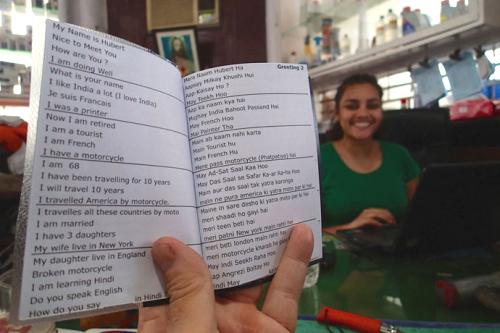 My Name is Hubert
Nice to Meet You
How are You ?
I am doing Well
What is your name
I like India a lot (I love India)
Je suis Francais
I was a printer
Now I am retired
I am a tourist
I am French
I have a motorcycle
I am 68
I have been travelling for 10 years
I will travel 10 years
I travelled America by motorcycle.
I travelles all these countries by moto
I am married
I have 3 daughters
My wife live in New York
My daughter live in England
Broken motorcycle
I am learning Hindi
Do you speak English
How do you say in Hindi
Greeting 2
Mara Naam Hubert Ha
Aapsay Milkay Khushi Hui
Aap Kaisay Ho ?
May Teekh Hoo
Aap ka naam kya hai
Mujhay India Bahoot Passand Hai
May French Hoo
Mai Painter Tha
Main ab kaam nahi karta
Main Tourist hu
Main French Hu
Mere pass motorcycle (Phatpatiya) hai
May Ad-Sat Saal Kaa Hoo
May Das Saal se Safar Ka-ar Ra-ha Hoo
Main aur das saal tak yatra karonga
main ne pura america ki yatra moto par ki hai
Maine in sare desho ki yatra moto par ki hai
meri shaadi ho gayi hai
meri teen beti hai
meri patni New york main rahti hai
meri beti london main rahti
meri motorcycle kharab ho
May indi Seekh Raha Hoo
ap Angrezi Boltay Ho
indi May